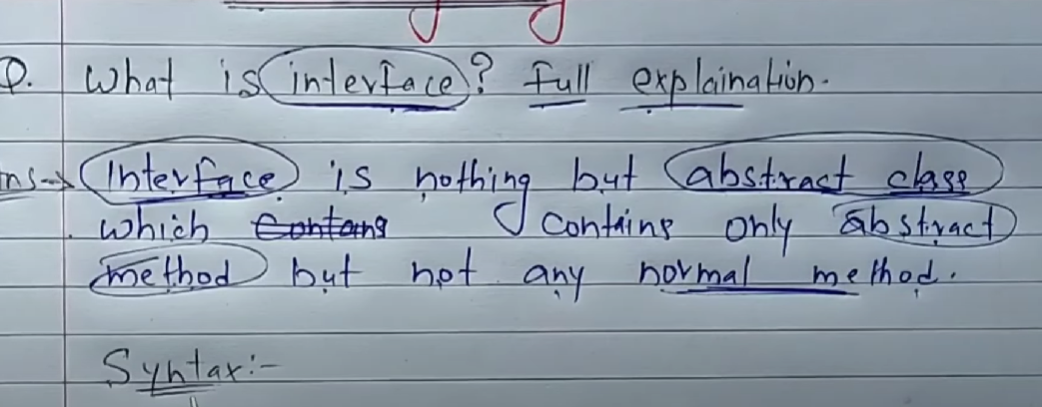 Q. What is interface? Full explaination.
Ans→ Interface is nothing but abstract class
which Contans Contains only abstract
method but not any normal method.
Syntax:-